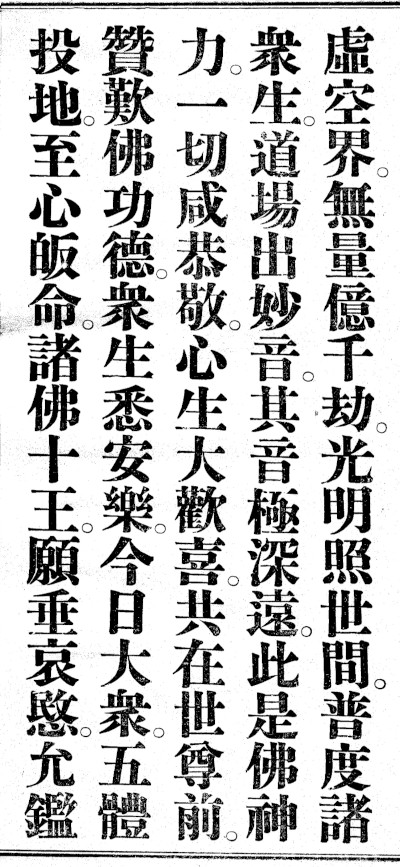 虛空界。無量億千劫。光明照世間。普度諸
衆生。道場出妙音。其音極深遠。此是佛神
力。一切咸恭敬。心生大歡喜。共在世尊前。
贊歎佛功德。衆生悉安樂。今日大衆。五體
投地。至心皈命。諸佛十王。願垂哀愍。允鑑